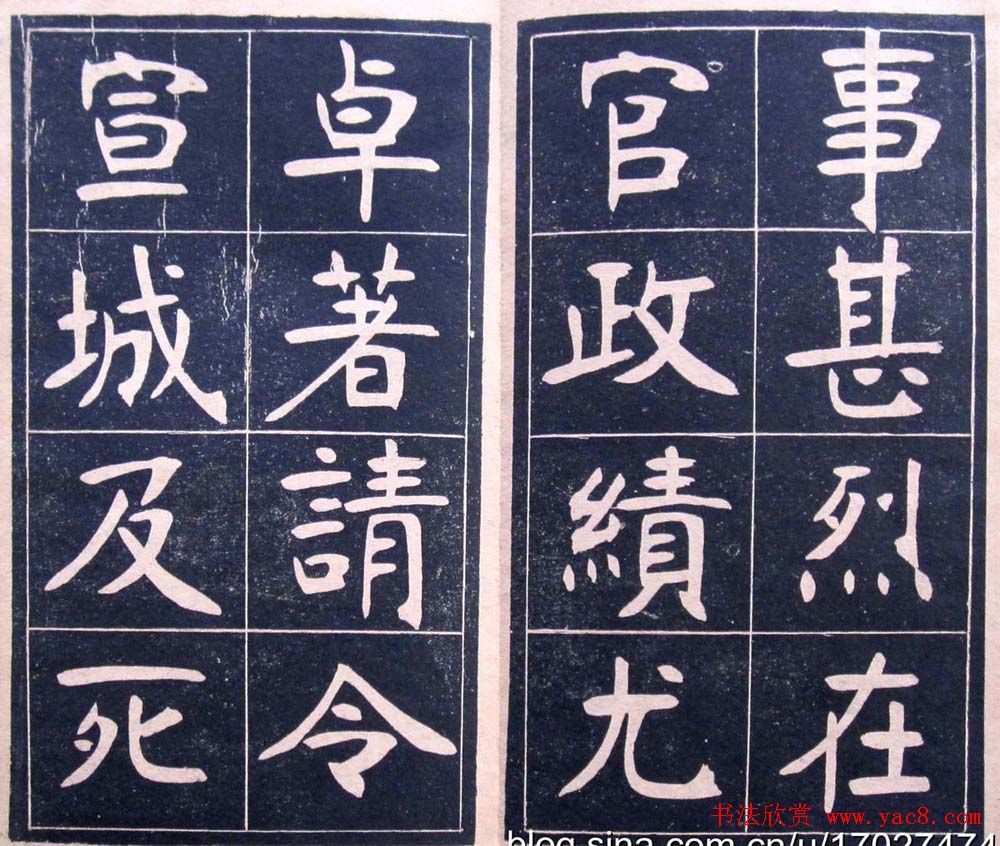 事甚烈在
官政績尤
卓著請令
宣城及死
书法欣赏
www.yac8.com
blog.sina.com.cn/u/17027474